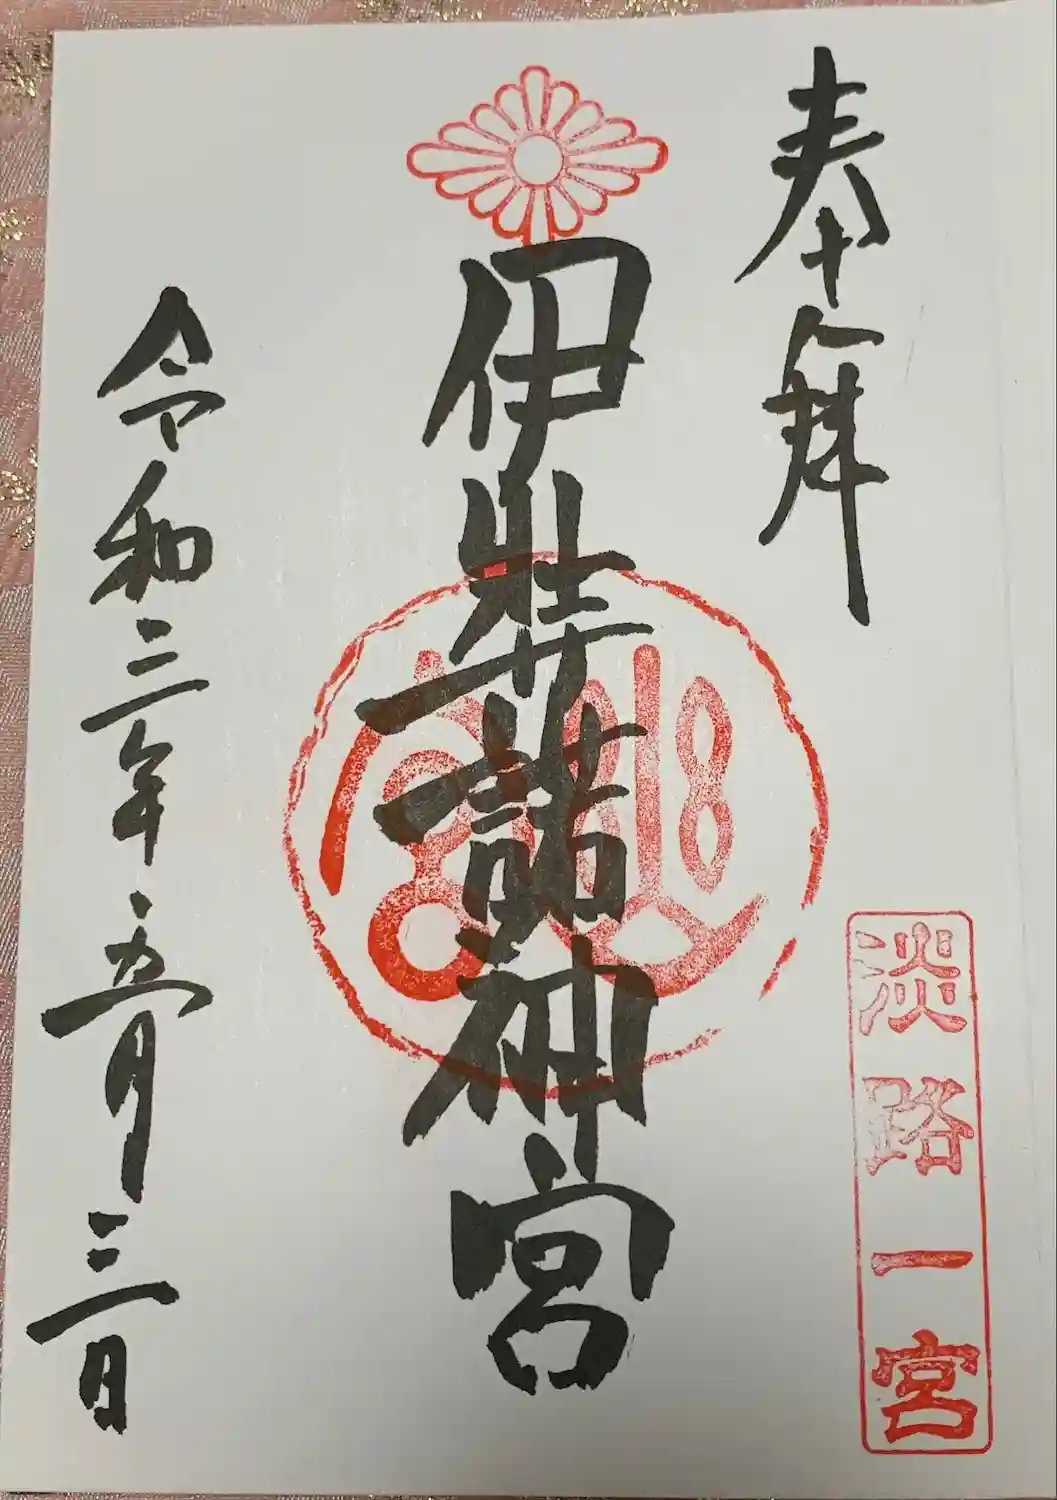 奉拝
淡路一宮
伊弉諾神宮
令和三年五月三日